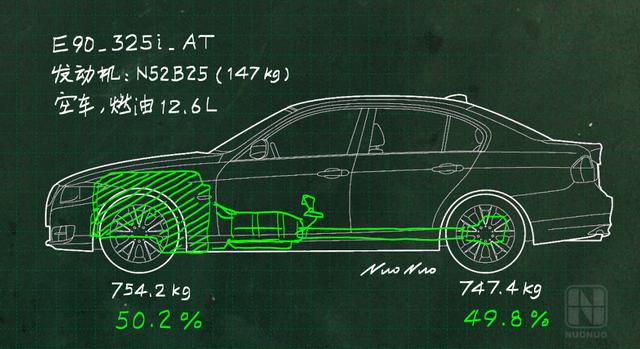 E90_325i_AT
发动机：N52B25（147kg）
空车，燃油12.6L
NuoNuo
754.2kg
747.4kg
50.2%
49.8%
N
NUONUO